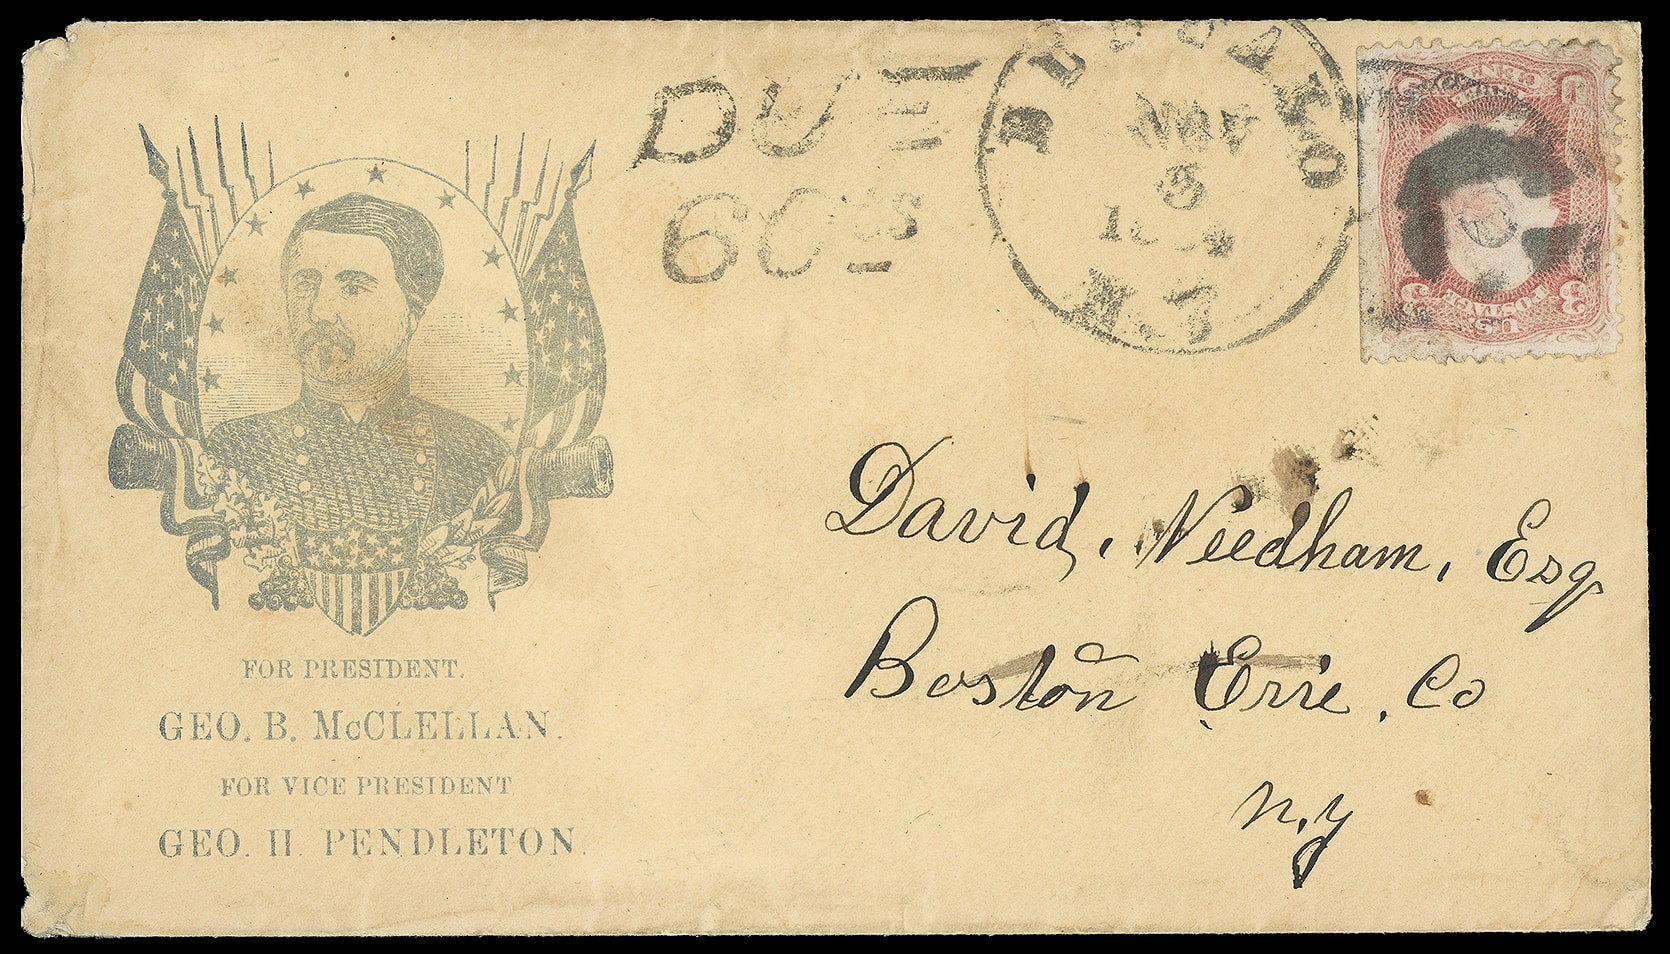 DUE
6Cts
BUFFALO
NOV
5
1864
N.Y
U 3 CENTS
3 US 3
POSTAGE
David, Needham, Esq
Boston Erie. Co
N,y
FOR PRESIDENT.
GEO. B. McCLELLAN.
FOR VICE PRESIDENT
GEO. H. PENDLETON.